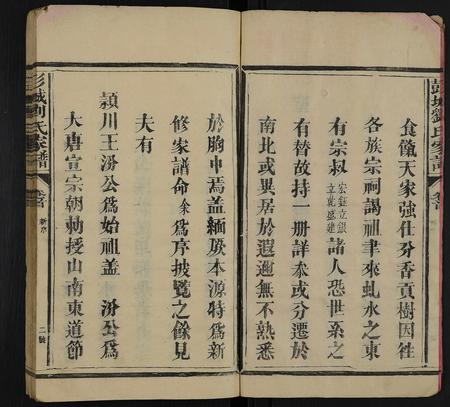 彭城劉氏家譜
卷首
食餼天家強仕分香貢樹因徃
各族宗祠謁祖聿來虬水之東
有宗叔宏鈺立銀立乾盛建諸人恐世系之
有替故持一册詳叅或分遷於
南北或異居於遐邇無不熟悉
於胸中焉蓋緬厥本源特爲新
修家譜命余爲序披覽之餘見
夫有
潁川王汾公爲始祖蓋 汾公爲
大唐宣宗朝勅授山南東道節
彭城刘氏家譜
卷首
新序
二號